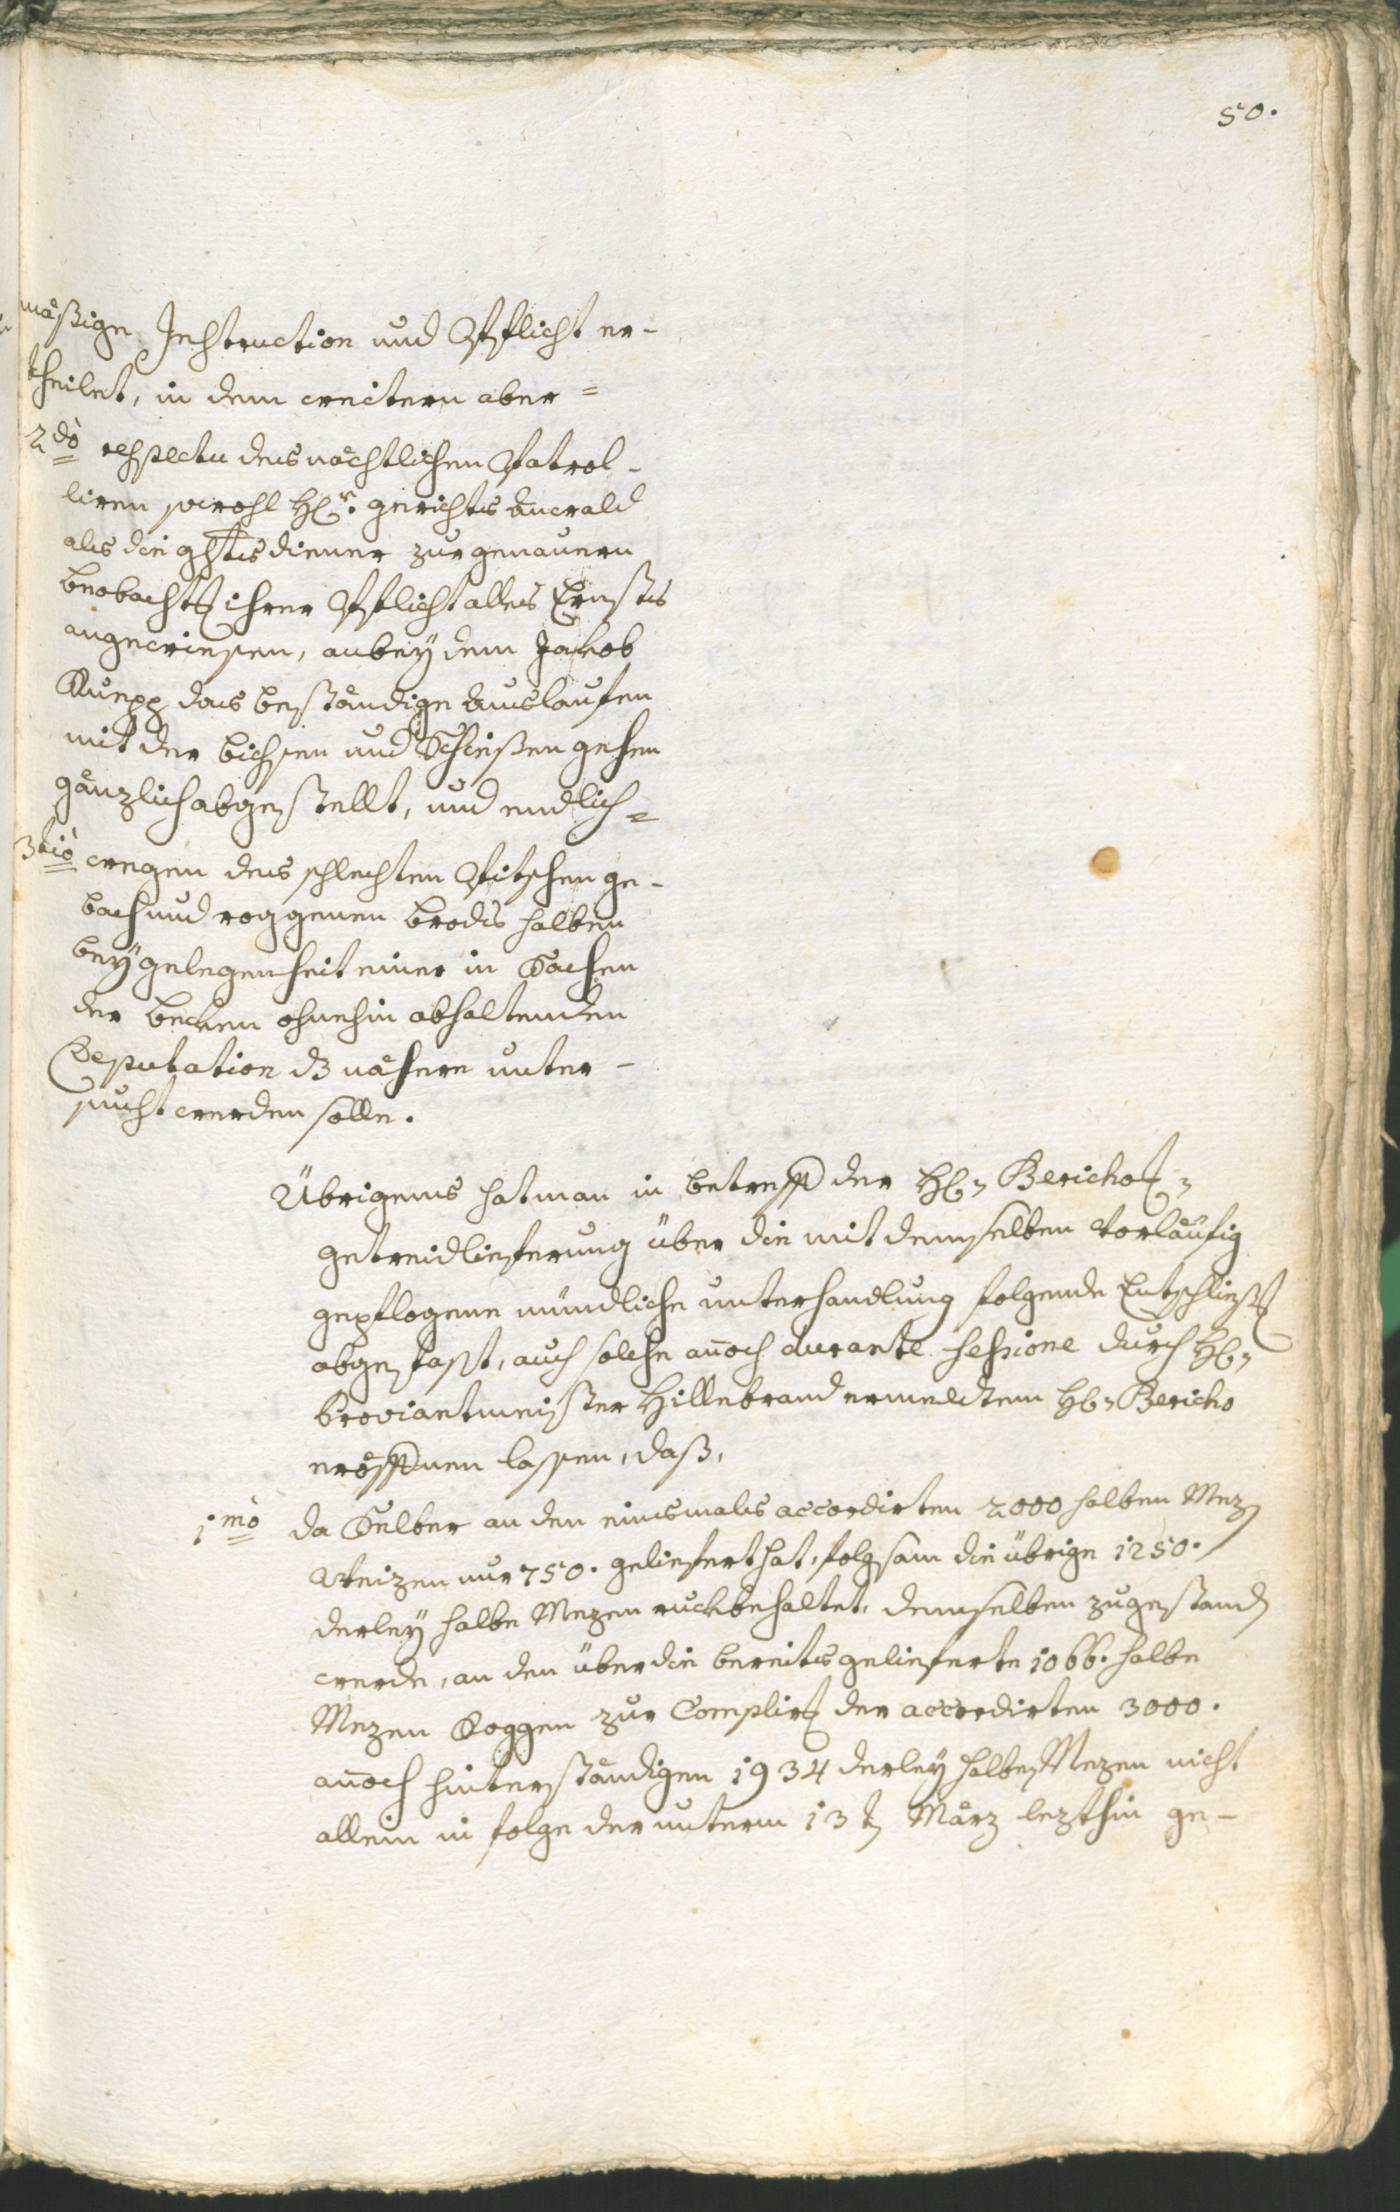 50.
mäßige Instruction und Pflicht er-
theilet, in dem weitern aber =
2dò respectu des nächtlichen Patrol-
liren sowohl H: gerichts anwald
als die ghts diener zur genauern
beobachtg ihrer Pflicht alles Ernstes
angewiesen, anbey dem Jakob
das beständige auslaufen
mit der bichsen und Schießen gehen
gänzlich abgestellt, und endlich =
3tiò wegen des schlechten Pitschen ge-
bach und roggenen brods halben
bey gelegenheit einer in Sachen
der becken ohnehin abhaltenden
Deputation dz nähere unter-
sucht werden solle.
Übrigens hat man in betreff der H: Bericho
getreidlieferung über die mit demselben vorläufig
gepflogene mündliche unterhandlung folgende Entschließg
abgefaßt, auch solche anoch durante sessione durch H:
Proviantmeister Hillebrand ermeldtem H: Bericho
eröffnen lassen, daß,
1mò da Selber an den einsmals accordirten 2000 halben Mez
Weizen nur 750. geliefert hat, folgsam die übrige 1250.
derley halbe Mezen ruckbehaltet, demselben zugestand
werde, an den über die bereits gelieferte 1066. halbe
Mezen Roggen zur Complirg der accordirten 3000.
anoch hinterständigen 1934 derley halbe Mezen nicht
allein in folge der unterm 13t März lezthin ge-